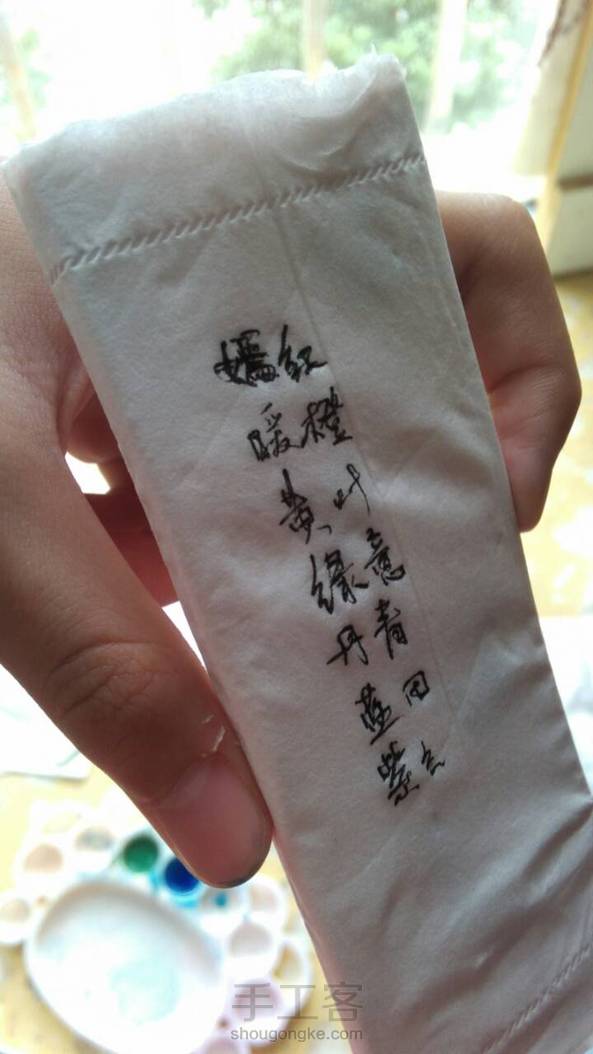 嫣红
暖橙
黄叶
绿意
丹青
蓝田
紫云
手工客
shougongke.com